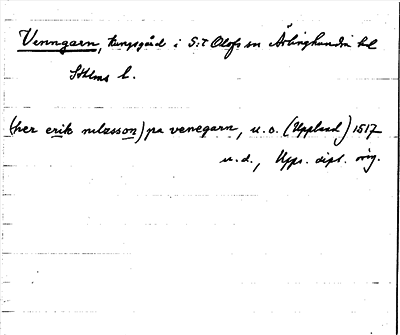 Venngarn, kungsgård i S:t Olofs sn Ärlinghundra hd
Sthlms l.
(her erik nilzsson) pa venegarn, u.o. (Uppland) 1517
u.d., Upps. dipl. orig.